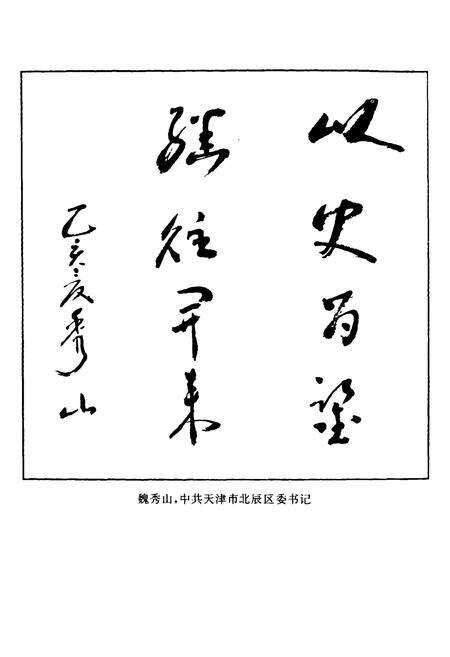 以史为鉴
继往開来
乙亥夏秀山
魏秀山,中共天津市北辰区委书记